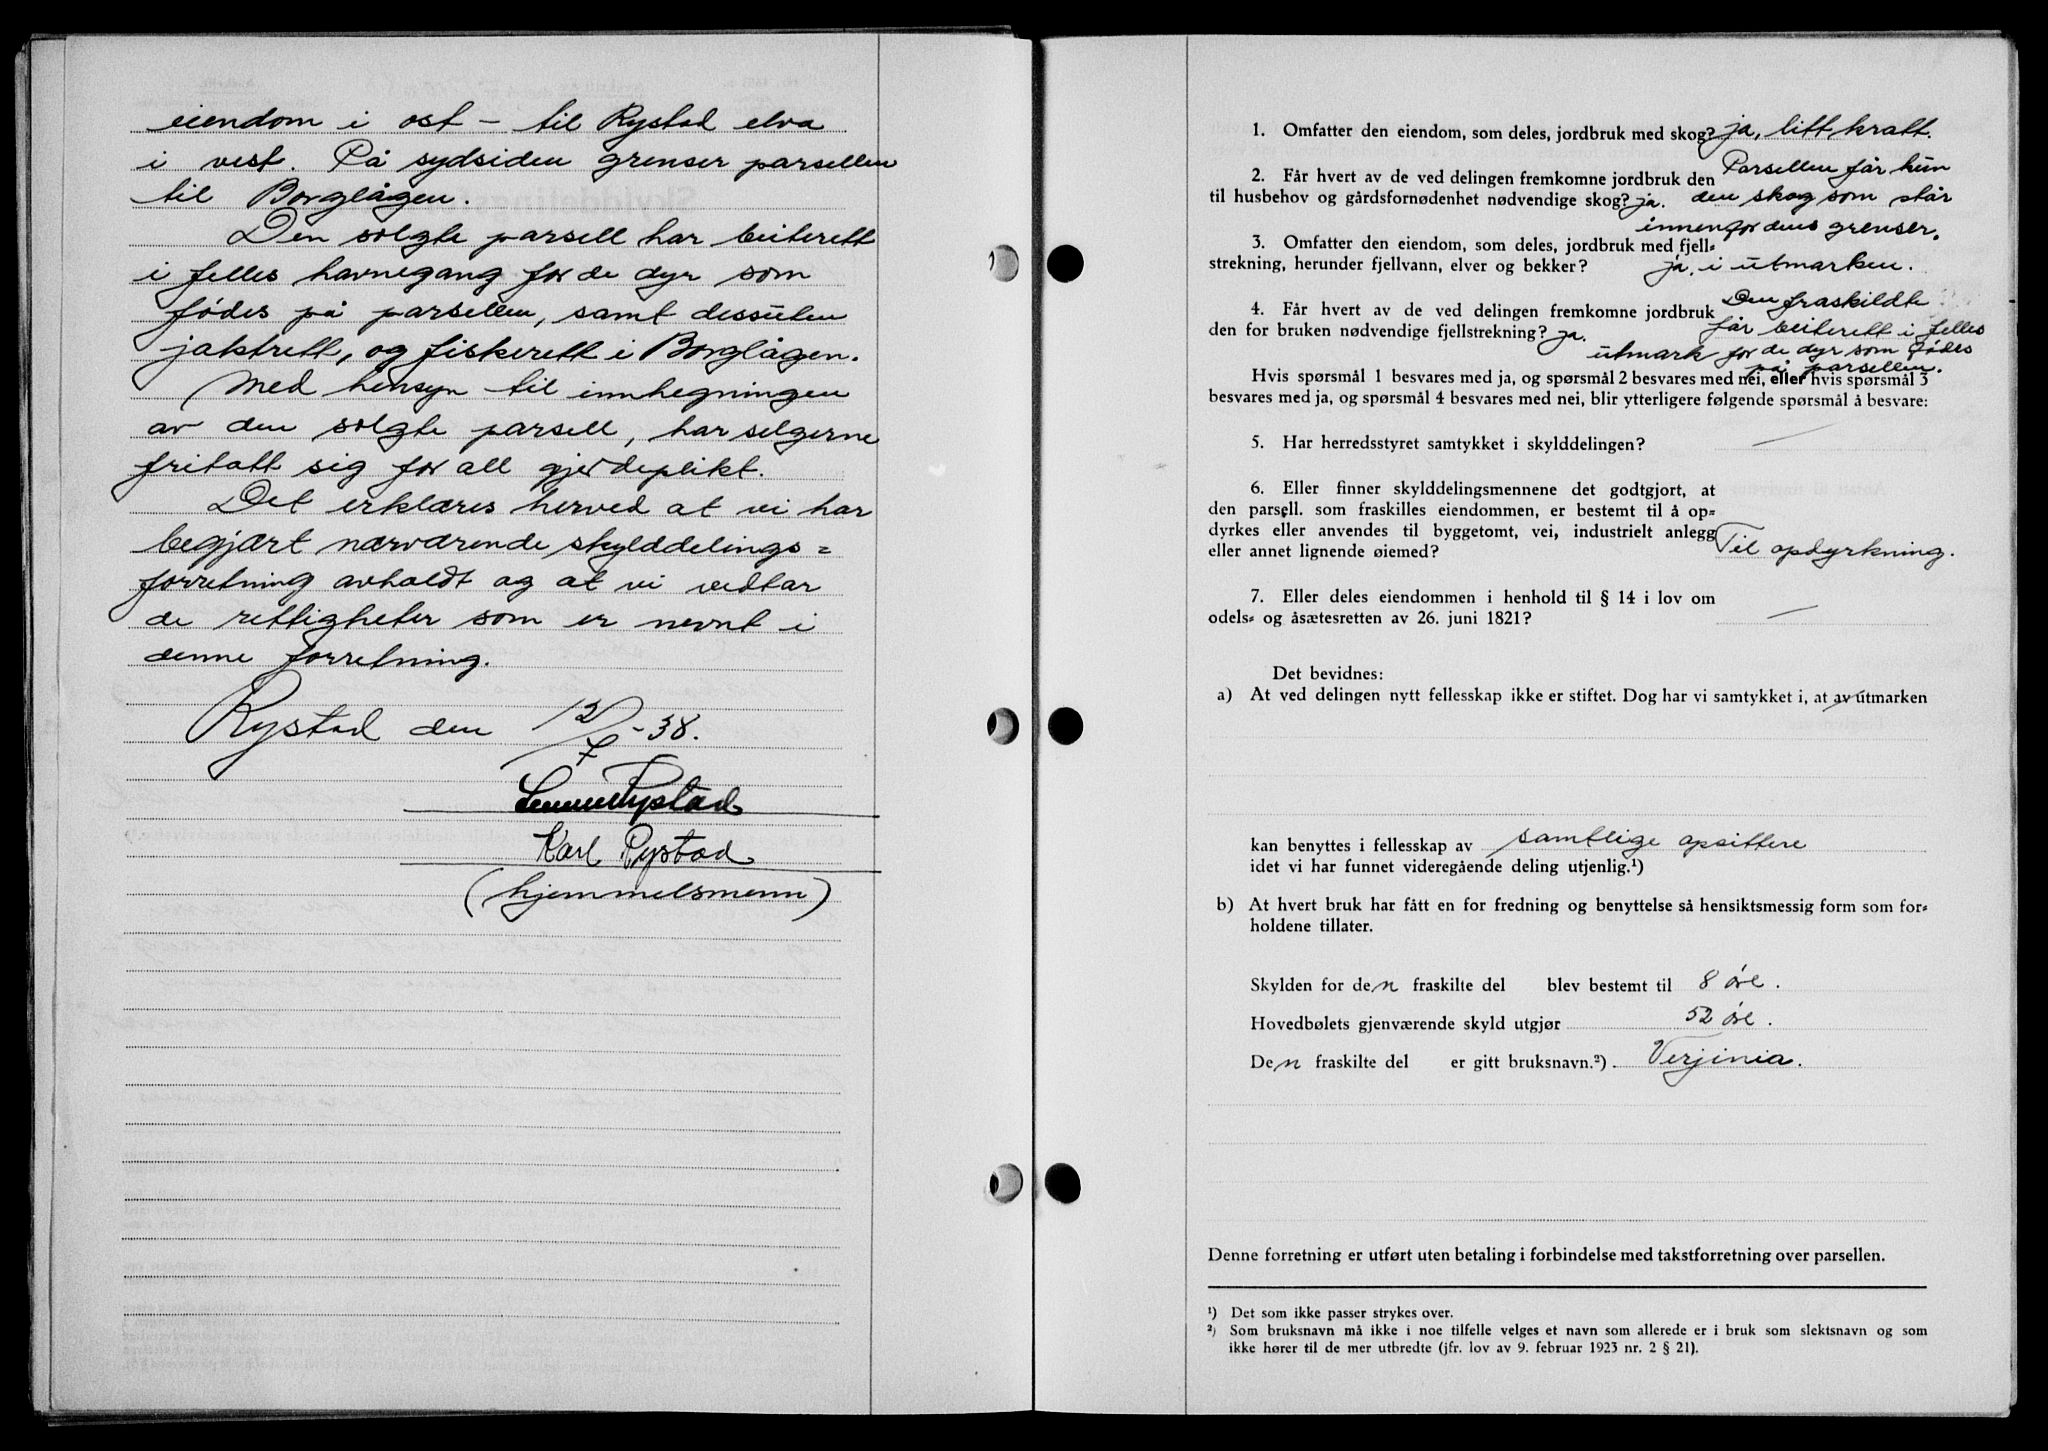 eiendom i øst – til Rystad elva
i vest. På sydsiden grenser parsellen
til Borglågen.
Den solgte parsell har beiterett
i felles havnegang for de dyr som
fødes på parsellen, samt dessuten
jaktrett, og fiskerett i Borglågen.
Med hensyn til innhegningen
av den solgte parsell, har selgerne
fritatt sig for all gjerdeplikt.
Det erklæres herved at vi har
begjært nærværende skylddelings=
forretning avholdt og at vi vedtar
de rettigheter som er nevnt i
denne forretning.
Rystad den 12/7-38.
Rystad
Karl Rystad
(hjemmelsmenn)
1. Omfatter den eiendom, som deles, jordbruk med skog? ja, litt kratt.
2. Får hvert av de ved delingen fremkomne jordbruk den Parsellen får kun
til husbehov og gårdsfornødenhet nødvendige skog? ja. den skog som står
innenfor dens grenser.
3. Omfatter den eiendom, som deles, jordbruk med fjell=
strekning, herunder fjellvann, elver og bekker? ja, i utmarken.
4. Får hvert av de ved delingen fremkomne jordbruk Den fraskildte
den for bruken nødvendige fjellstrekning? ja. får beiterett i felles
utmark for de dyr som fødes
på parsellen.
Hvis spørsmål 1 besvares med ja, og spørsmål 2 besvares med nei, eller hvis spørsmål 3
besvares med ja, og spørsmål 4 besvares med nei, blir ytterligere følgende spørsmål å besvare:
5. Har herredsstyret samtykket i skylddelingen? —
6. Eller finner skylddelingsmennene det godtgjort, at
den parsell. som fraskilles eiendommen, er bestemt til å op=
dyrkes eller anvendes til byggetomt, vei, industrielt anlegg
eller annet lignende øiemed? Til opdyrkning.
7. Eller deles eiendommen i henhold til § 14 i lov om
odels= og åsætesretten av 26. juni 1821? —
Det bevidnes:
a) At ved delingen nytt fellesskap ikke er stiftet. Dog har vi samtykket i, at av utmarken
kan benyttes i fellesskap av samtlige opsittere
idet vi har funnet videregående deling utjenlig.¹)
b) At hvert bruk har fått en for fredning og benyttelse så hensiktsmessig form som for=
holdene tillater.
Skylden for den fraskilte del blev bestemt til 8 øre.
Hovedbølets gjenværende skyld utgjør 52 øre.
Den fraskilte del er gitt bruksnavn.²) Verjinia.
Denne forretning er utført uten betaling i forbindelse med takstforretning over parsellen.
¹) Det som ikke passer strykes over.
²) Som bruksnavn må ikke i noe tilfelle velges et navn som allerede er i bruk som slektsnavn og som
ikke hører til de mer utbredte (jfr. lov av 9. februar 1923 nr. 2 § 21).